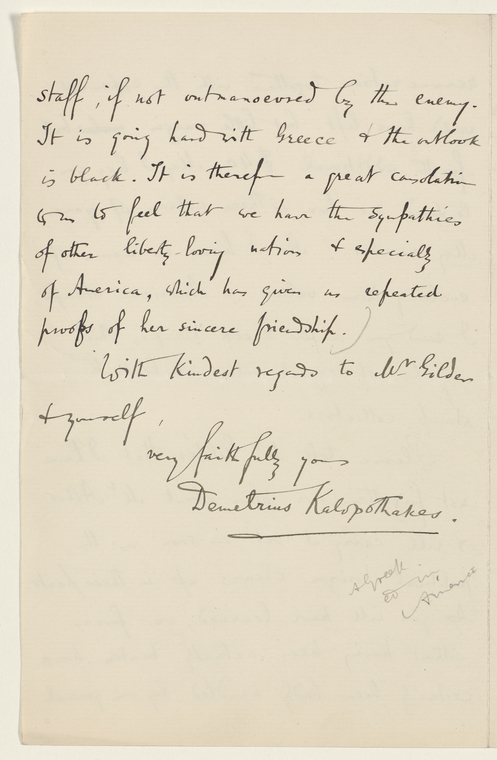 staff, if not outmanoevred by the enemy.
It is going hard with Greece & the outlook
is black. It is therefore a great consolation
to us to feel that we have the sympathies
of other liberty-loving nations & especially
of America, which has given us repeated
proofs of her sincere friendship.)
With kindest regards to Mr Gilder
& yourself,
very faithfully yours
Demetrius Kalopothakes.
A Greek
ed in
America